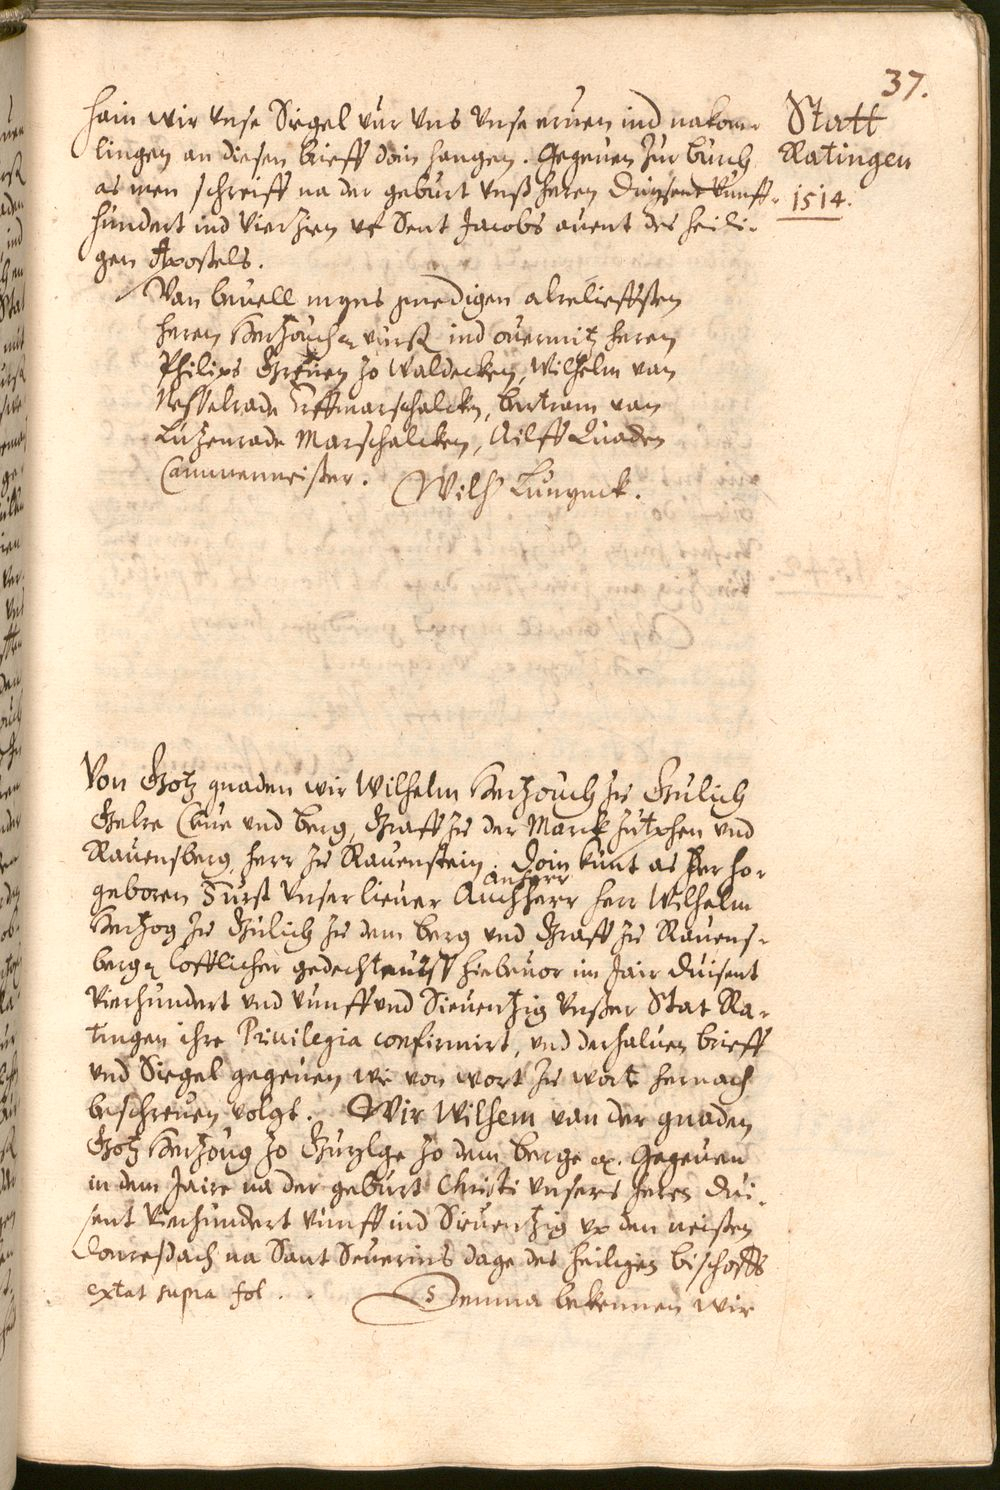 37.
Statt
Ratingen
1514.
hain wir vnse Siegel vur vns vnse eruen ind nakom-
lingen an diesen brieff doin hangen. Gegeuen zur burch
as men schreifft na der geburt vnß heren Duysent vunff-
hundert ind vierzien vf Sent Jacobs auent des heili-
gen Apostels.
Van beuell myns gnedigen alreliefften
heren Hertzouchen vurß ind ouermitz heren
Philips Greuen zo Waldecken, Wilhelm van
Nesselrade Erffmarschalcken, Bertram van
Lutzenrade Marschalcken, Ailff Quaden
Cammermeister. Wilh Lunynck.
Von Gotz gnaden wir Wilhelm Hertzouch zu Gulich
Gelre Cleue vnd Berg, Graff zu der Marck Zutphen vnd
Rauensberg, herr zu Rauenstein. Doin kunt as der ho-
anherr
geboren Furst vnser lieuer Anchherr herr Wilhelm
Hertzog zu Gulich zu dem Berg vnd Graff zu Rauens-
berg löfflicher gedechtnuss hiebeuor im Jair duisent
vierhundert vnd vunff vnd Sieuentzig vnser Stat Ra-
tingen ihre Priuilegia confirmirt, vnd derhaluen brieff
vnd Siegel gegeuen wie von wort zu wort hernach
beschreuen volgt. Wir Wilhem van der gnaden
Gotz Hertzoug zo Guylge zo dem Berge etc. Gegeuen
in dem Jaire na der geburt Christi vnsers heren dui-
sent vierhundert vunff ind Sieuentzig vp den neisten
Donrestach na Sant Seuerins dage des heiligen bischoffs
extat supra fol. . Demna bekennen wir